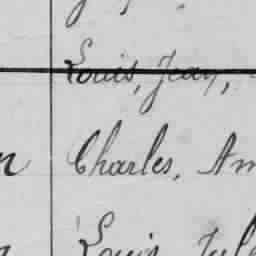 Louis, Jean,
n Charles, Am
Louis Jul